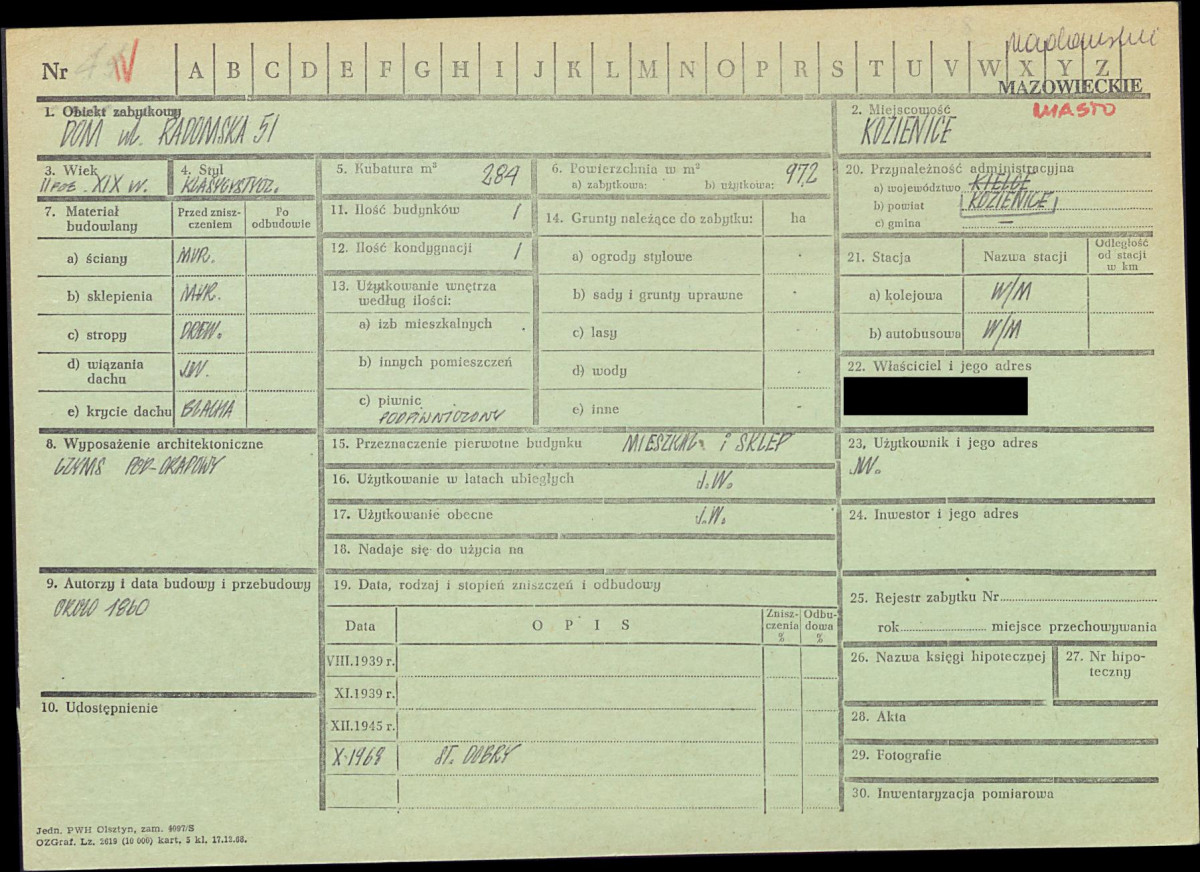 Nr IV A B C D E F G H I J K L M N O P R S T U V W X Y Z
MAZOWIECKIE
MIASTO
1. Obiekt zabytkowy
DOM ul. RADOMSKA 51
2. Miejscowość
KOZIENICE
3. Wiek
II POŁ. XIX W.
4. Styl
KLASYCYSTYCZ.
5. Kubatura m³ 284
6. Powierzchnia w m²
a) zabytkowa: b) użytkowa: 97,2
20. Przynależność administracyjna
a) województwo KIELCE
b) powiat KOZIENICE
c) gmina —
7. Materiał budowlany
Przed zniszczeniem
Po odbudowie
a) ściany MUR.
b) sklepienia MUR.
c) stropy DREW.
d) wiązania dachu JW.
e) krycie dachu BLACHA
11. Ilość budynków 1
12. Ilość kondygnacji 1
13. Użytkowanie wnętrza
według ilości:
a) izb mieszkalnych
b) innych pomieszczeń
c) piwnic
PODPIWNICZONY
14. Grunty należące do zabytku: ha
a) ogrody stylowe
b) sady i grunty uprawne
c) lasy
d) wody
e) inne
21. Stacja Nazwa stacji
Odległość
od stacji
w km
a) kolejowa W/M
b) autobusowa W/M
22. Właściciel i jego adres
8. Wyposażenie architektoniczne
GZYMS POD-OKAPOWY
15. Przeznaczenie pierwotne budynku MIESZKAL. i SKLEP
16. Użytkowanie w latach ubiegłych J.W.
17. Użytkowanie obecne J.W.
18. Nadaje się do użycia na
23. Użytkownik i jego adres
JW.
24. Inwestor i jego adres
9. Autorzy i data budowy i przebudowy
OKOŁO 1860
19. Data, rodzaj i stopień zniszczeń i odbudowy
Data OPIS
Znisz-
czenia
%
Odbu-
dowa
%
VIII.1939 r.
XI.1939 r.
XII.1945 r.
X-1968 ST. DOBRY
25. Rejestr zabytku Nr
rok miejsce przechowywania
26. Nazwa księgi hipotecznej
27. Nr hipo-
teczny
10. Udostępnienie
28. Akta
29. Fotografie
30. Inwentaryzacja pomiarowa
Jedn. PWH Olsztyn, zam. 4097/S
OZGraf. Lz. 2619 (10 000) kart, 5 kl. 17.12.68.